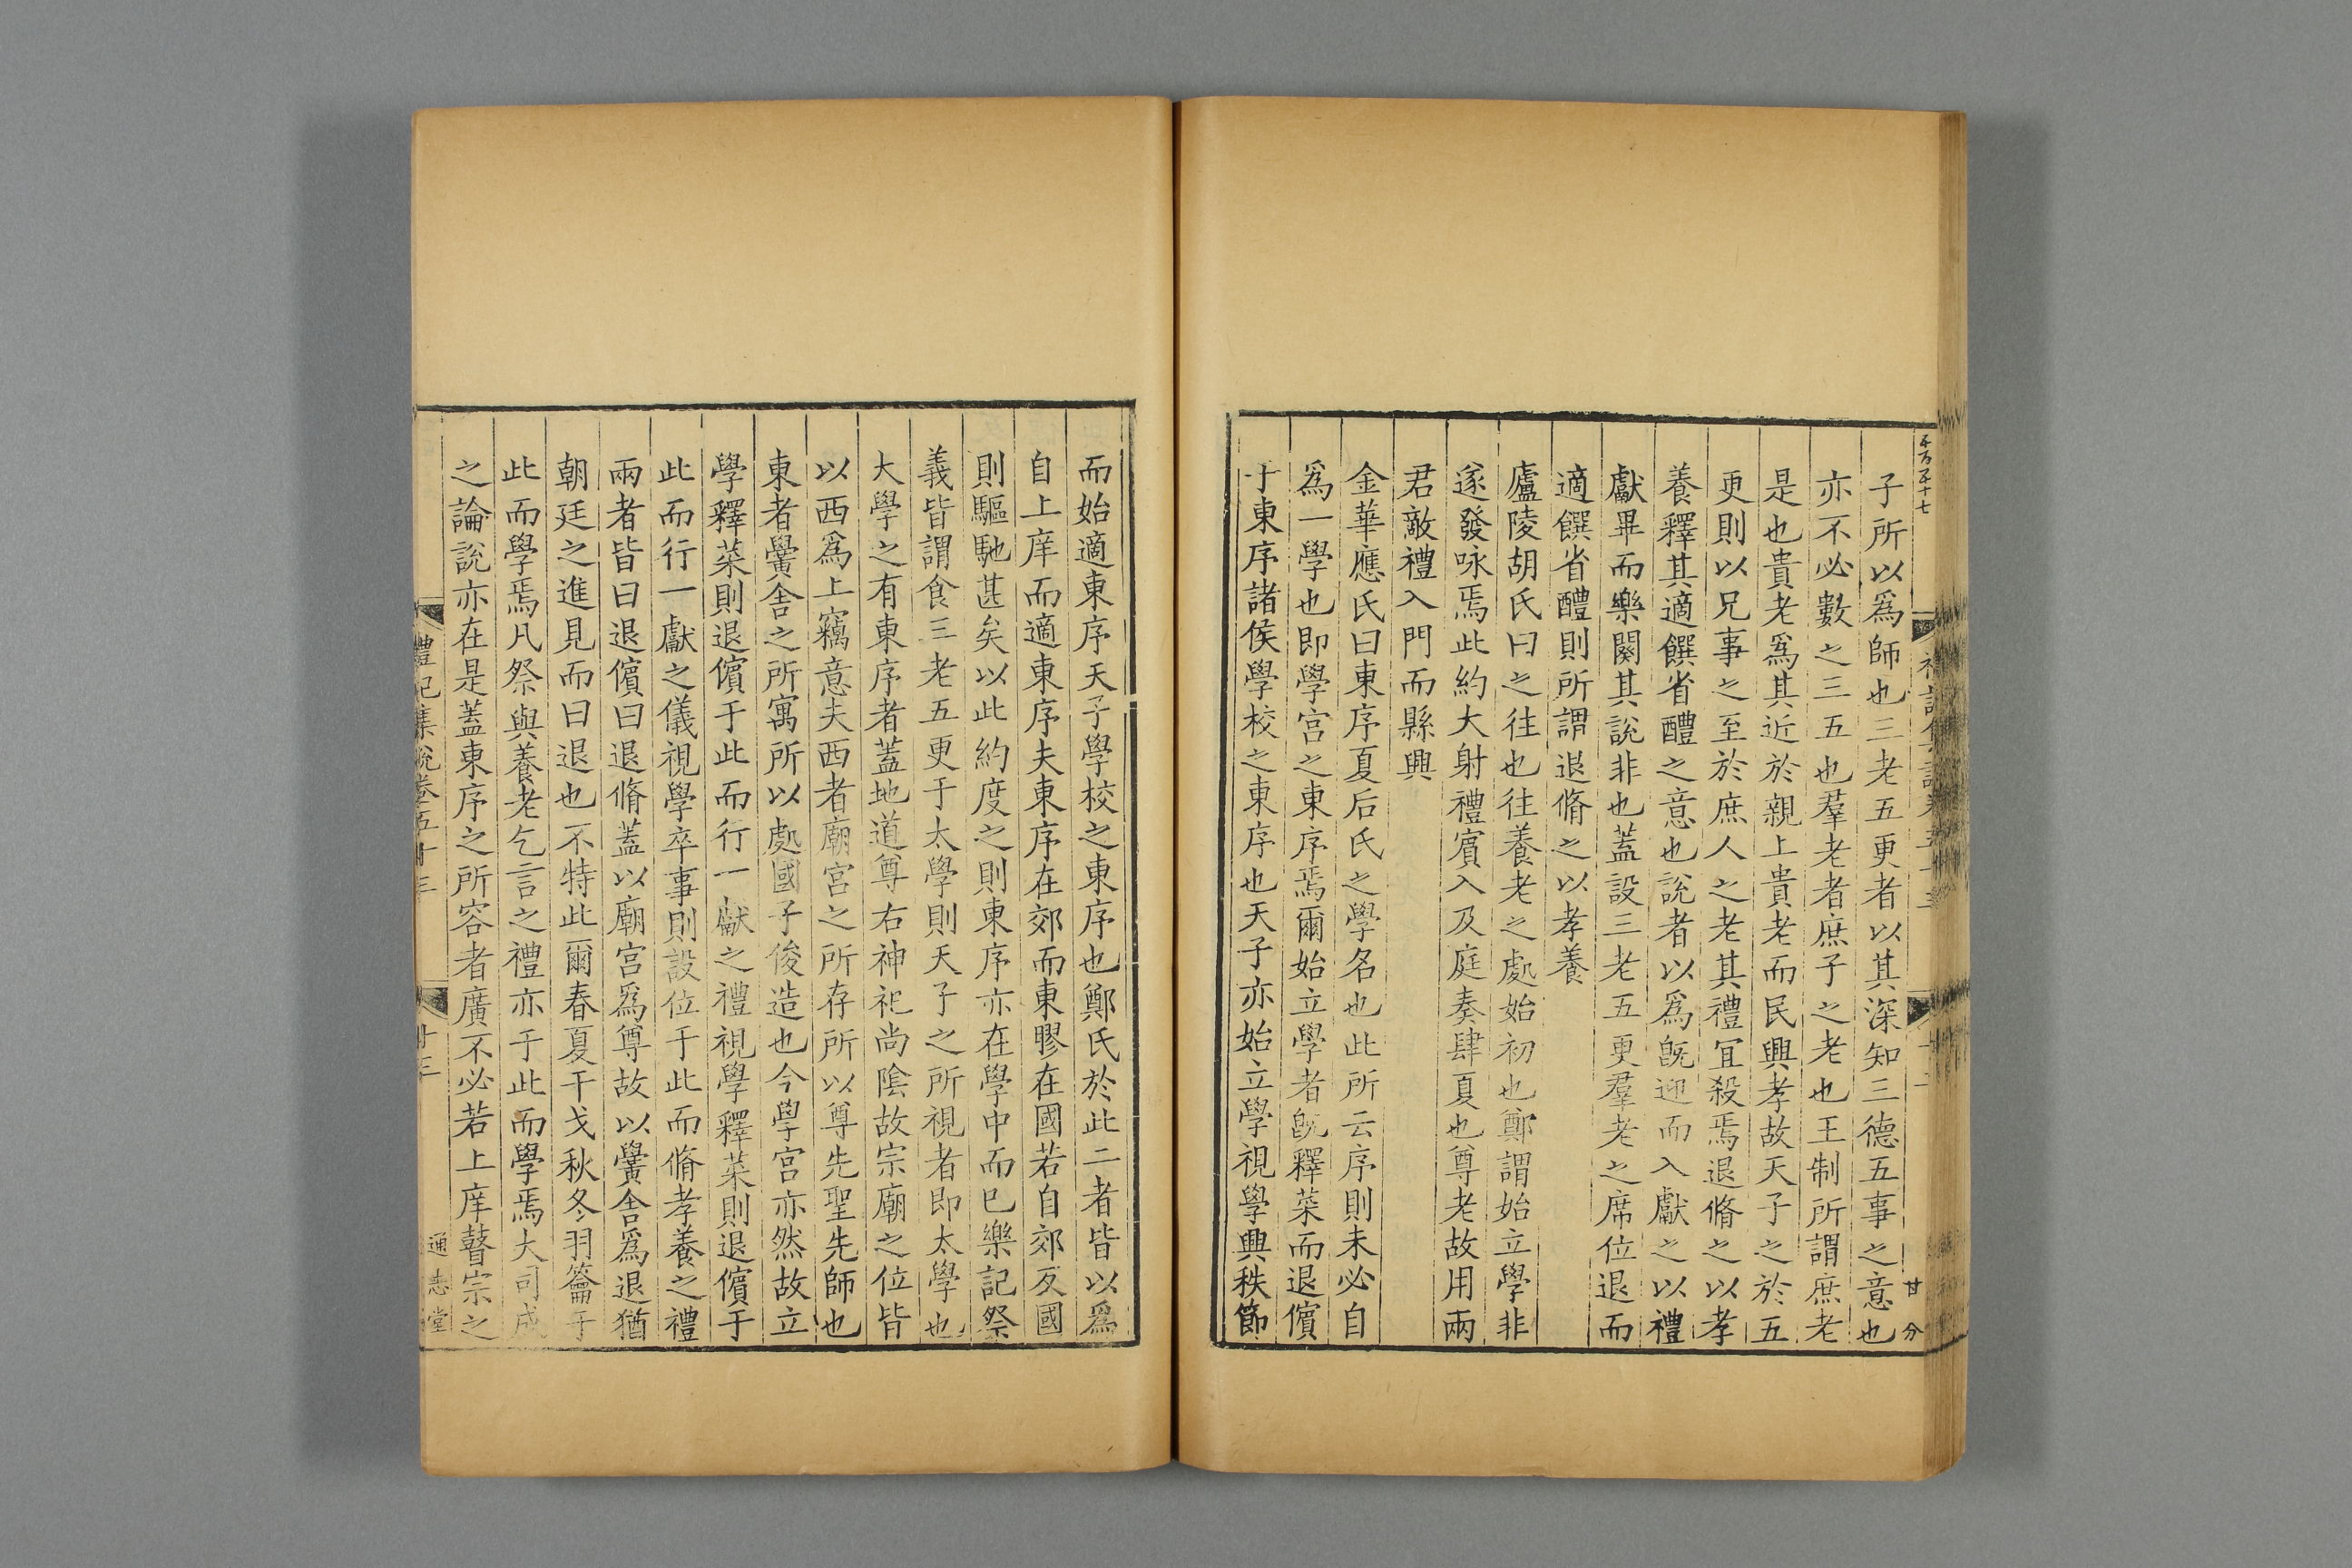 子所以爲師也三老五更者以其深知三德五事之意也
亦不必數之三五也羣老者庶子之老也王制所謂庶老
是也貴老爲其近於親上貴老而民興孝故天子之於五
更則以兄事之至於庶人之老其禮宜殺焉退脩之以孝
養釋其適饌省醴之意也說者以爲旣迎而入獻之以禮
獻畢而樂闋其說非也蓋設三老五更羣老之席位退而
適饌省醴則所謂退脩之以孝養
廬陵胡氏曰之往也往養老之處始初也鄭謂始立學非
遂發咏焉此約大射禮賓入及庭奏肆夏也尊老故用兩
君敵禮入門而縣興
金華應氏曰東序夏后氏之學名也此所云序則未必自
爲一學也即學宫之東序焉爾始立學者旣釋菜而退儐
于東序諸侯學校之東序也天子亦始立學視學興秩節
而始適東序天子學校之東序也鄭氏於此二者皆以爲
自上庠而適東序夫東序在郊而東膠在國若自郊反國
則驅馳甚矣以此約度之則東序亦在學中而已樂記祭
義皆謂食三老五更于太學則天子之所視者即太學也
大學之有東序者蓋地道尊右神祀尚陰故宗廟之位皆
以西爲上竊意夫西者廟宫之所存所以尊先聖先師也
東者黌舍之所寓所以處國子俊造也今學宫亦然故立
學釋菜則退儐于此而行一獻之禮視學釋菜則退儐于
此而行一獻之儀視學卒事則設位于此而脩孝養之禮
兩者皆曰退儐曰退脩蓋以廟宫爲尊故以黌舍爲退猶
朝廷之進見而曰退也不特此爾春夏干戈秋冬羽籥于
此而學焉凡祭與養老乞言之禮亦于此而學焉大司成
之論說亦在是蓋東序之所容者廣不必若上庠瞽宗之
禮記集說卷五十三
廿三
通志堂